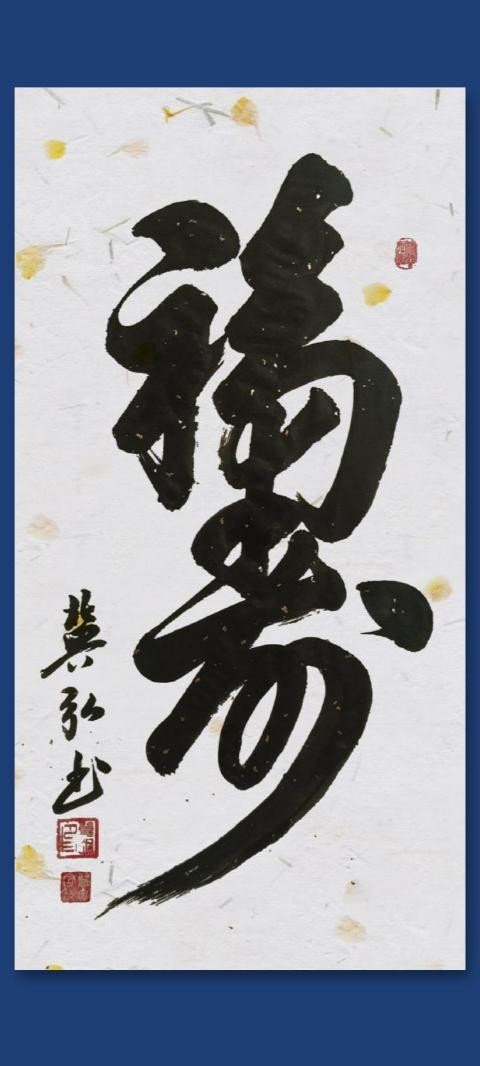 福寿
冀弘书